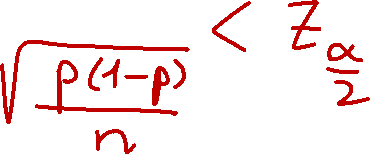 √(p(1-p)/n) < z_{α/2}